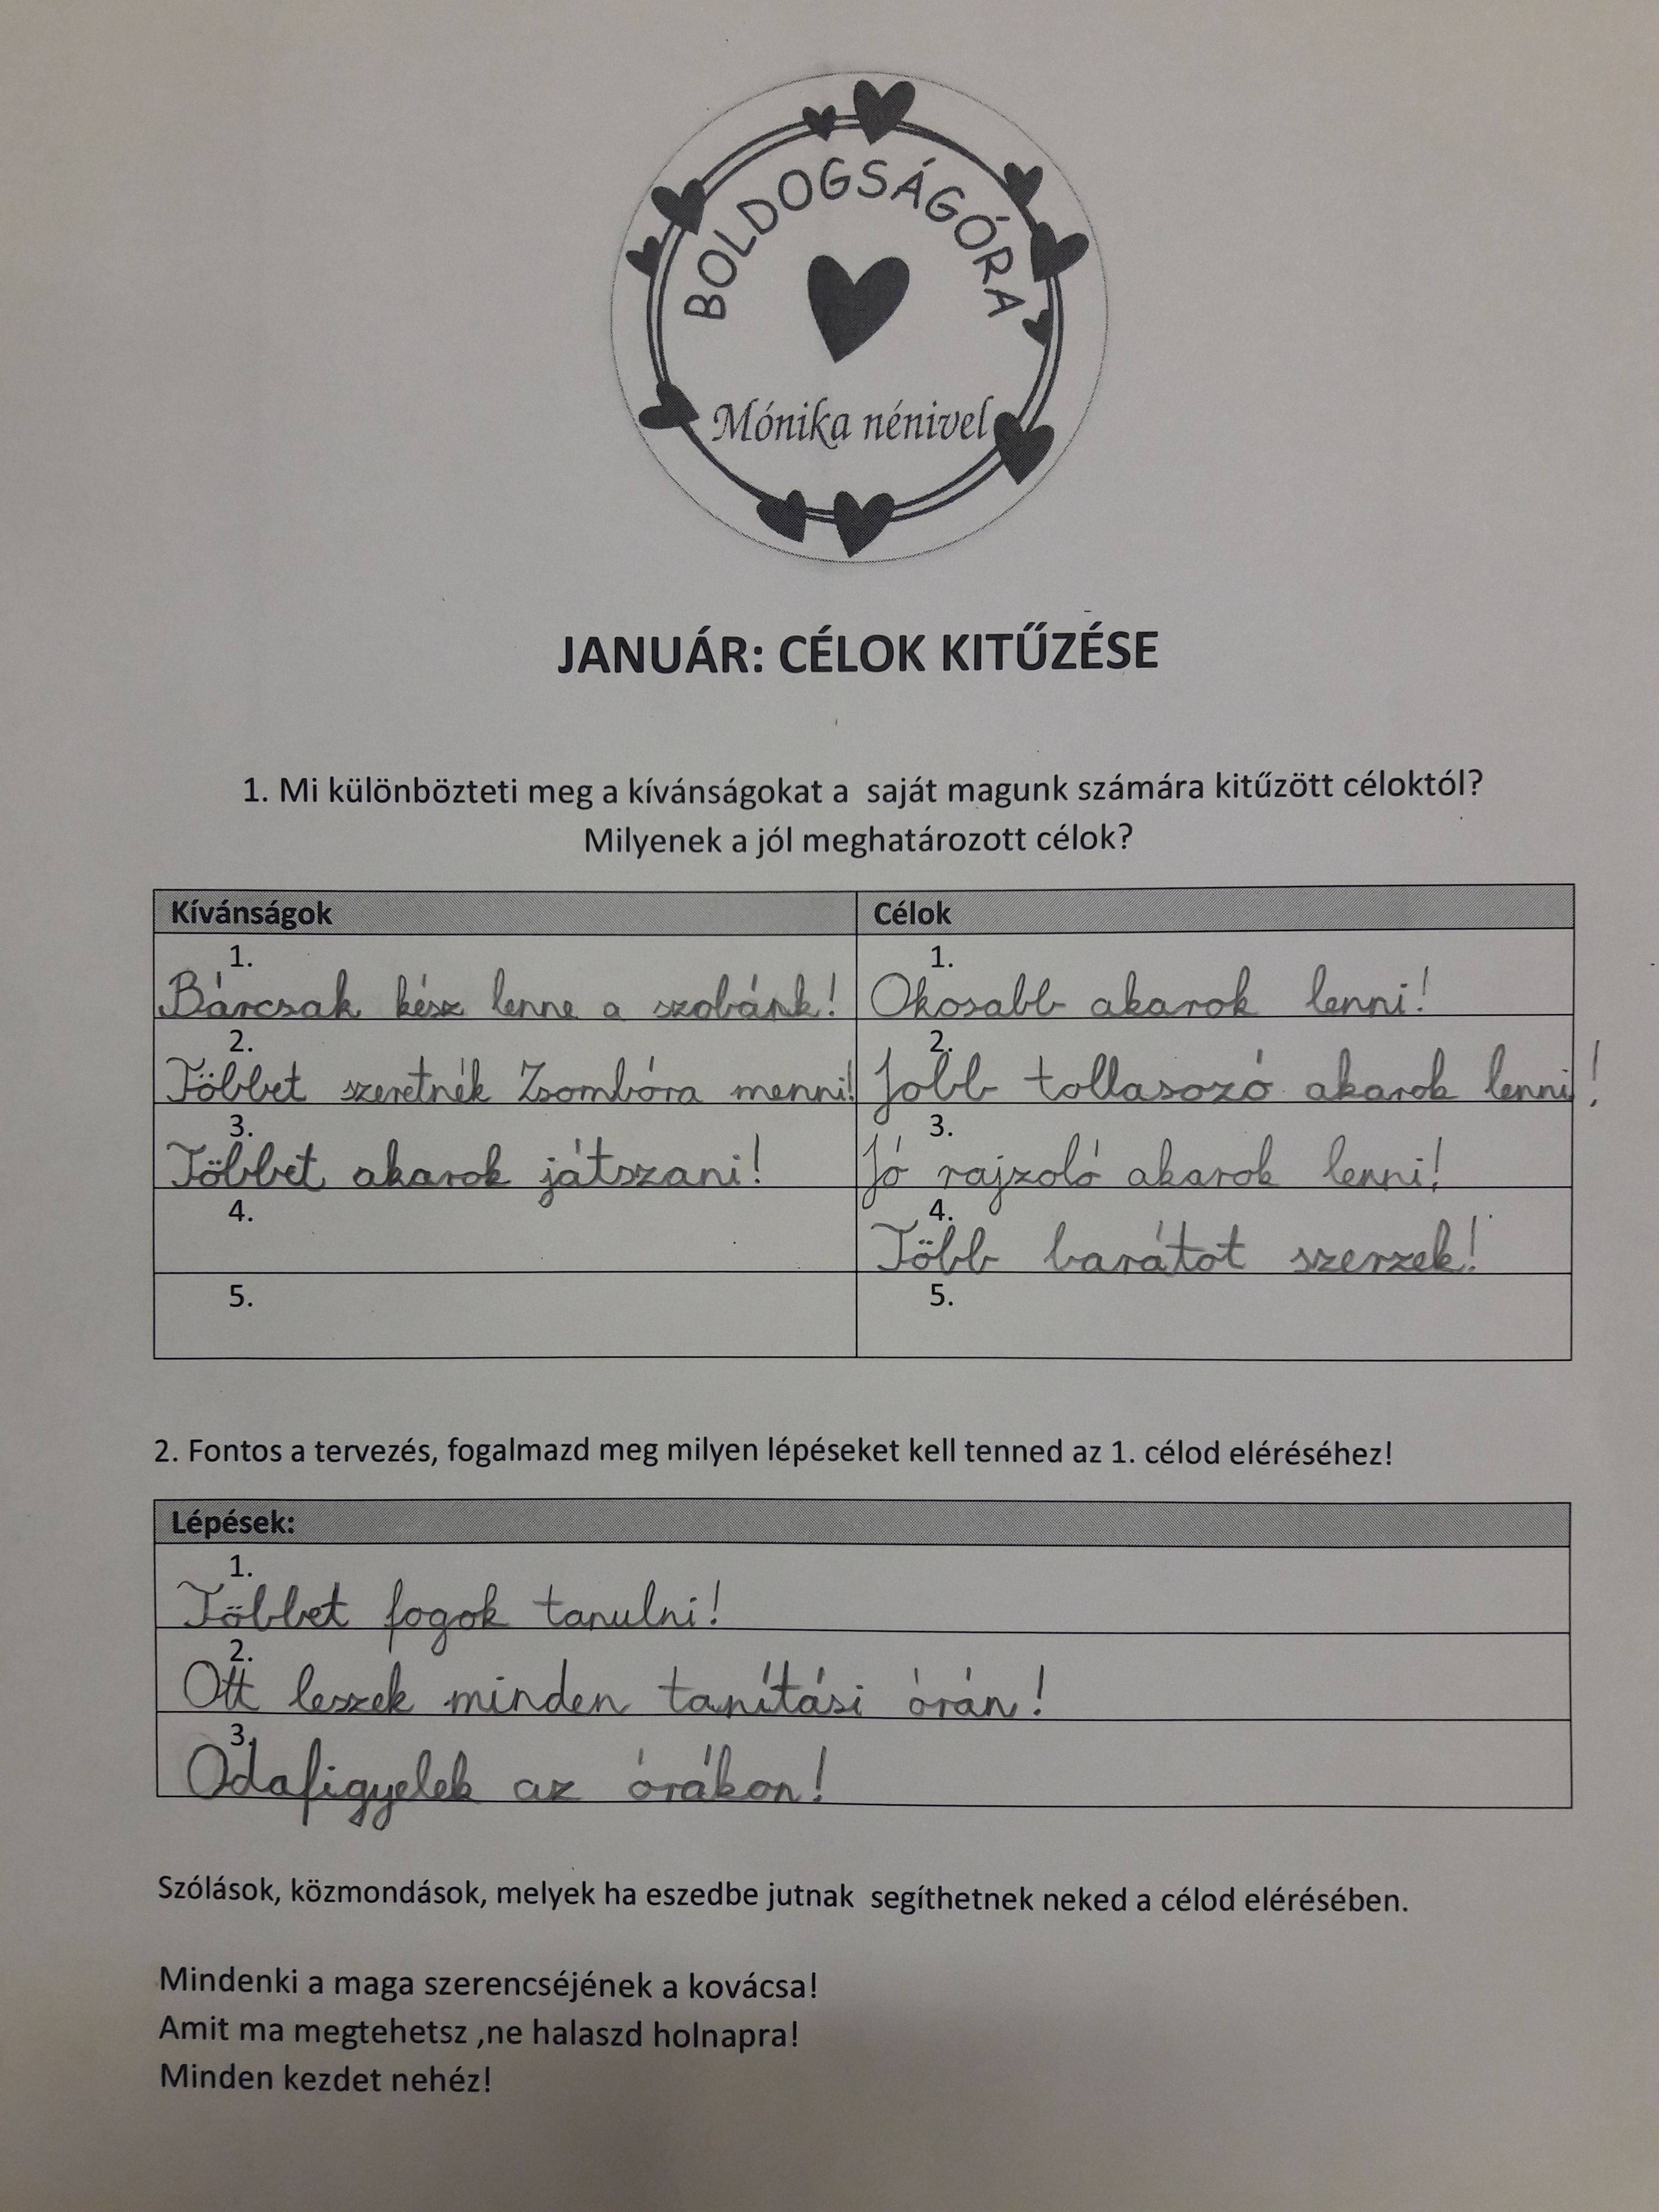 BOLDOGSÁGÓRA
Mónika nénivel
JANUÁR: CÉLOK KITŰZÉSE
1. Mi különbözteti meg a kívánságokat a saját magunk számára kitűzött céloktól?
Milyenek a jól meghatározott célok?
Kívánságok
1.
Bárcsak kész lenne a szobánk!
2.
Többet szeretnék Zsombóra menni!
3.
Többet akarok játszani!
4.
5.
Célok
1.
Okosabb akarok lenni!
2.
Jobb tollasozó akarok lenni!
3.
Jó rajzoló akarok lenni!
4.
Több barátot szerzek!
5.
2. Fontos a tervezés, fogalmazd meg milyen lépéseket kell tenned az 1. célod eléréséhez!
Lépések:
1.
Többet fogok tanulni!
2.
Ott leszek minden tanítási órán!
3.
Odafigyelek az órákon!
Szólások, közmondások, melyek ha eszedbe jutnak segíthetnek neked a célod elérésében.
Mindenki a maga szerencséjének a kovácsa!
Amit ma megtehetsz ,ne halaszd holnapra!
Minden kezdet nehéz!